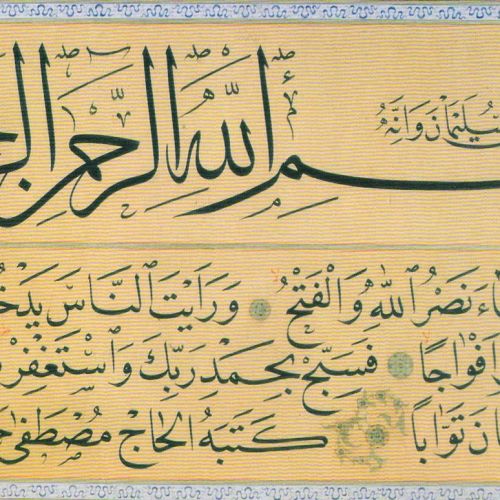 سُلَيْمَانَ وَإِنَّهُ
ـسم الله الرحمن الرحـ
ـاءَ نَصْرُ اللّٰهِ وَالْفَتْحُ وَرَاَيْتَ النَّاسَ يَدْخُـ
اَفْوَاجًا فَسَبِّحْ بِحَمْدِ رَبِّكَ وَاسْتَغْفِرْ
ـانَ تَوَّابًا كَتَبَهُ الْحَاجْ مُصْطَفٰى